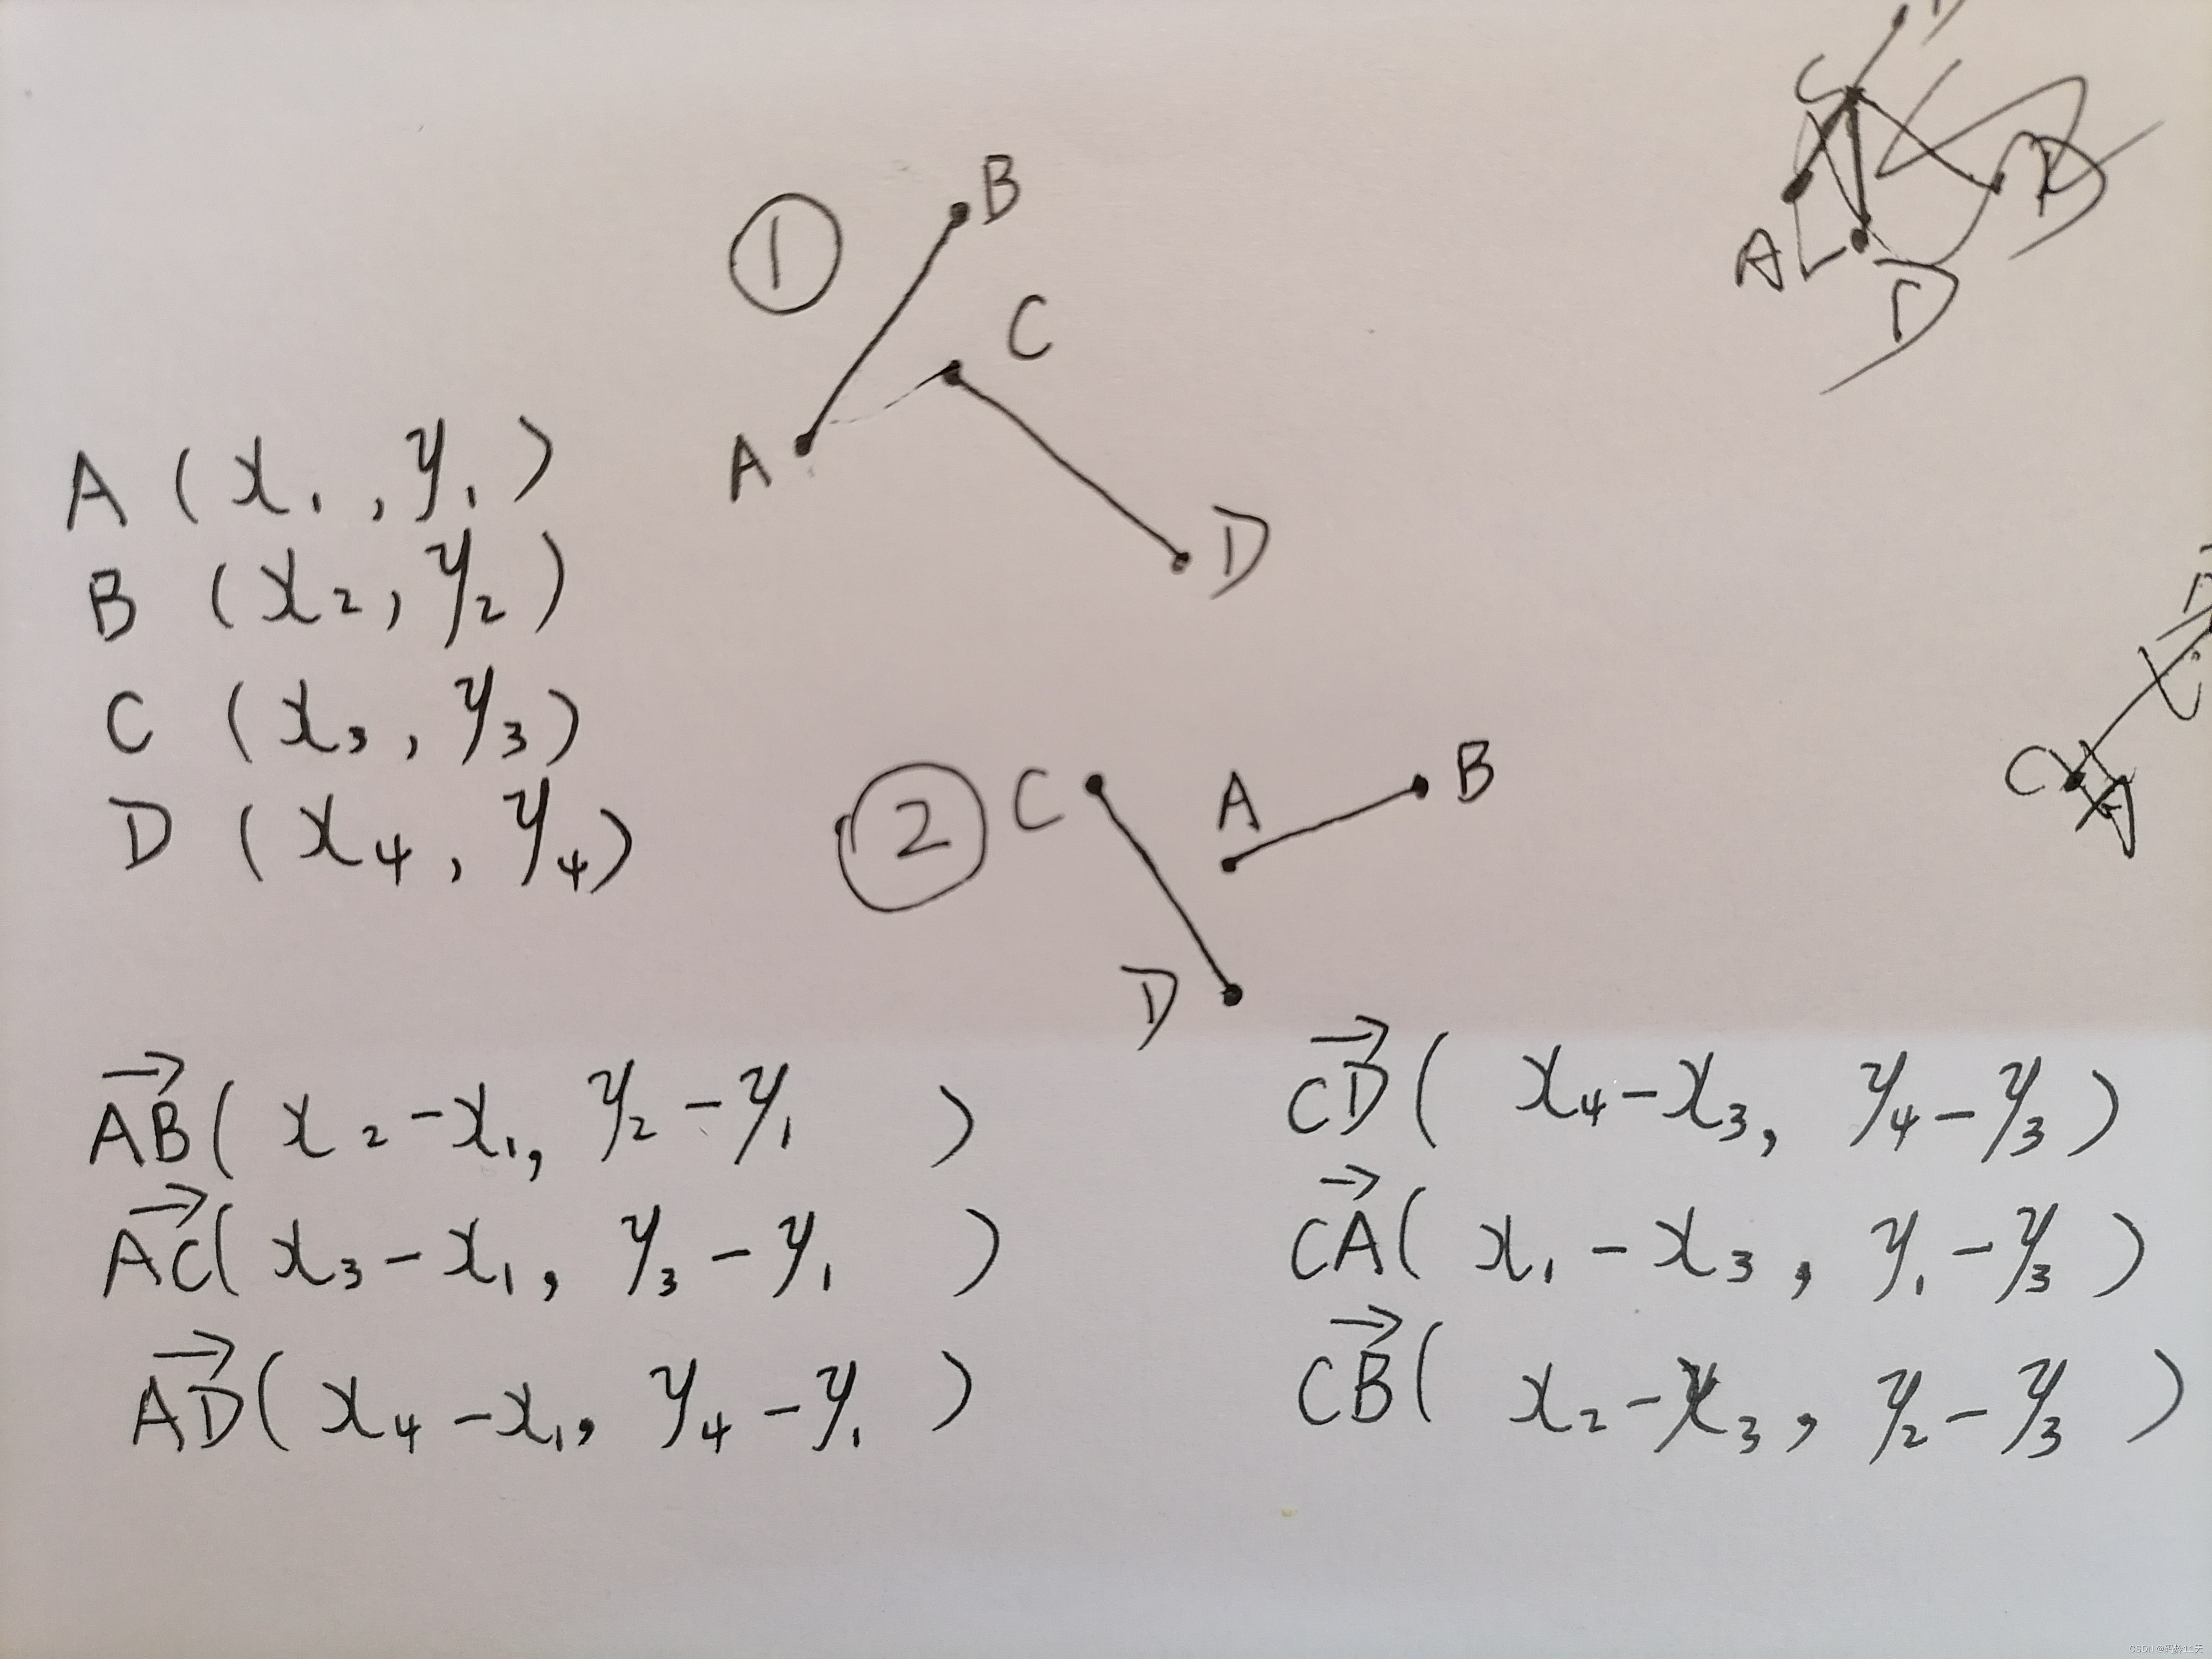 ①
B
C
A
D
A
C
B
D
A (x₁, y₁)
B (x₂, y₂)
C (x₃, y₃)
D (x₄, y₄)
②
C
A
B
D
C
AB→( x₂-x₁, y₂-y₁ )
AC→( x₃-x₁, y₃-y₁ )
AD→( x₄-x₁, y₄-y₁ )
CD→( x₄-x₃, y₄-y₃ )
CA→( x₁-x₃, y₁-y₃ )
CB→( x₂-x₃, y₂-y₃ )
CSDN @码龄11天